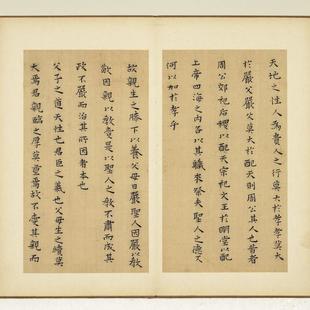 天地之性人為貴人之行莫大於孝孝莫大
於嚴父嚴父莫大於配天則周公其人也昔者
周公郊祀后稷以配天宗祀文王於明堂以配
上帝四海之內各以其職來祭夫聖人之德又
何以加於孝乎
故親生之膝下以養父母日嚴聖人因嚴以教
敬因親以教愛是以聖人之教不肅而成其
政不嚴而治其所因者本也
父子之道天性也君臣之義也父母生之續莫
大焉君親臨之厚莫重焉故不愛其親而